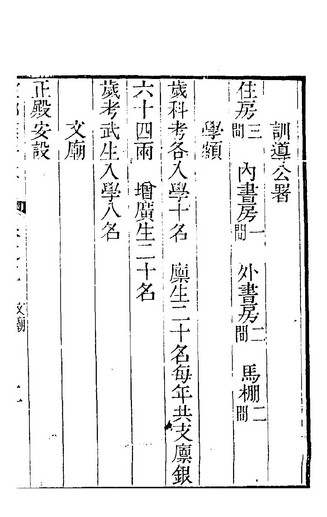 訓導公署
住房三間 內書房一間 外書房二間 馬棚二間
學額
歲科考各入學十名 廩生二十名每年共支廩銀
六十四兩 增廣生二十名
歲考武生入學八名
文廟
正殿安設
文廟